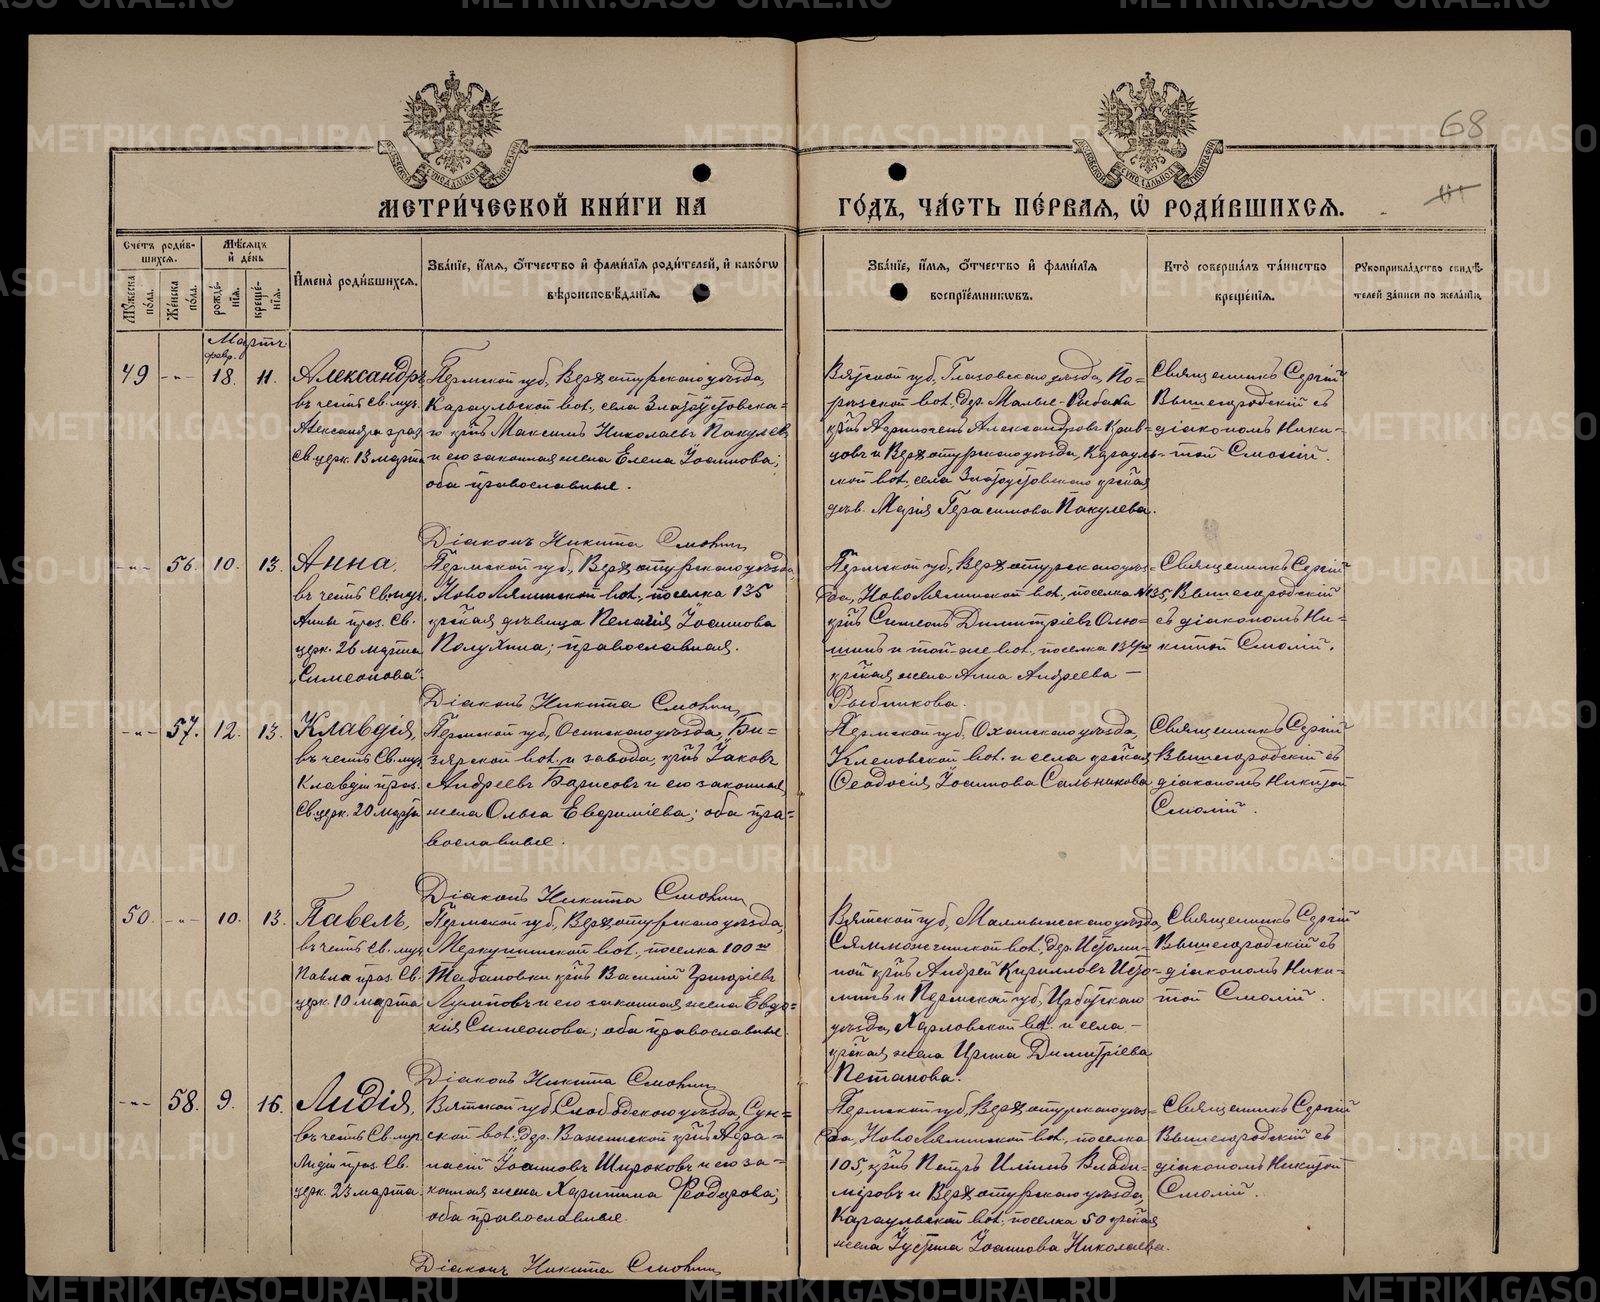 МЕТРИ́ЧЕСКОЙ КНИ́ГИ НА ГО́ДЪ, ЧА́СТЬ ПЕ́РВАЯ, Ѡ҆ РОДИ́ВШИХСЯ.
68
Сче́тъ роди́в-
шихся.
Мѣ́сяцъ
и҆ де́нь
Мꙋ́жеска по́ла.
Же́нска по́ла.
рожде́-
нїя.
креще́-
нїя.
И҆мена̀ роди́вшихся.
Зва́нїе, и҆́мя, ѻ҆́тчество и҆ фами́лїя роди́телей, и҆ како́гѡ
вѣроисповѣ́данїя.
Зва́нїе, и҆́мя, ѻ҆́тчество и҆ фами́лїя
воспрїе́мниковъ.
Кто̀ соверша́лъ та́инство
креще́нїя.
Рукоприкла́дство свидѣ́-
телей за́писи по жела́нїю.
Мартъ
февр.
49 -"- 18. 11.
Александръ,
въ честь св. муч.
Александра праз.
Св. церк. 13 марта
Пермской губ., Верхотурскаго уѣзда,
Караульской вол., села Златоустовска-
го крᵗⁿъ Максимъ Николаевъ Пакулев
и его законная жена Елена Іоаннова;
оба православные.
Вятской губ., Глазовскаго уѣзда, По-
рѣзской вол., дер. Малые-Рыбаки
цовъ и Верхотурскаго уѣзда, Карауль-
ской вол., села Златоустовскаго крᵗская
дѣв. Марія Герасимова Пакулева.
Священникъ Сергій
Вышегородскій съ
діакономъ Ники-
той Смолій.
Діаконъ Никита Смолий
-"- 56. 10. 13.
Анна,
въ честь Св. муч.
Анны праз. Св.
церк. 26 марта
"Симеонова".
Пермской губ., Верхотурскаго уѣзда,
Ново Лялинской вол., поселка 135
крᵗская дѣвица Пелагія Іоаннова
Полухина; православная.
Пермской губ., Верхотурскаго уѣз-
да, Ново Лялинской вол., поселка №135,
крᵗⁿъ Симеонъ Димитріевъ Олю-
шинъ и той-же вол., поселка 134го
крᵗская жена Анна Андреева —
Рыбникова.
Священникъ Сергій
Вышегородскій
съ діакономъ Ни-
китой Смолій.
Діаконъ Никита Смолий
-"- 57. 12. 13.
Клавдія,
въ честь Св. муч.
Клавдіи праз.
Св. церк. 20 марта
Пермской губ., Осинскаго уѣзда, Би-
зярской вол. и завода, крᵗⁿъ Іаковъ
Андреевъ Борисовъ и его законная
жена Ольга Евфиміева; оба пра-
вославные.
Пермской губ., Оханскаго уѣзда,
Кленовской вол. и села крᵗская
Ѳеодосія Іоаннова Сальникова
Священникъ Сергій
Вышегородскій съ
діакономъ Никитой
Смолій.
Діаконъ Никита Смолий
50. -"- 10. 13.
Павелъ,
въ честь св. муч.
Павла праз. Св.
церк. 10 марта
Пермской губ., Верхотурскаго уѣзда,
Меркушинской вол., поселка 100го
крᵗⁿъ Василій Григоріевъ
и его законная жена Евдо-
кія Симеонова; оба православные.
Вятской губ., Малмыжскаго уѣзда,
вол., дер. Истоми-
ной крᵗⁿъ Андрей Кирилловъ Исто-
минъ и Пермской губ., Ирбитскаго
уѣзда, Харловской вол. и села —
крᵗская жена Ирина Димитріева
Петанова.
Священникъ Сергій
Вышегородскій съ
діакономъ Ники-
той Смолій.
Діаконъ Никита Смолий
-"- 58. 9. 16.
Лидія,
въ честь Св. муч.
Лидіи праз. Св.
церк. 23 марта.
Вятской губ., Слободскаго уѣзда, Сун-
ской вол., дер. крᵗⁿъ Аѳа-
насій Іоанновъ Широковъ и его за-
конная жена Харитина Ѳеодорова;
оба православные.
Пермской губ., Верхотурскаго уѣз-
да, Ново Лялинской вол., поселка
105, крᵗⁿъ Петръ Илiинъ Влади-
міровъ и Верхотурскаго уѣзда,
Караульской вол., поселка 50 крᵗская
жена Іустина Іоаннова Николаева.
Священникъ Сергій
Вышегородскій съ
діакономъ Никитой
Смолій.
Діаконъ Никита Смолий